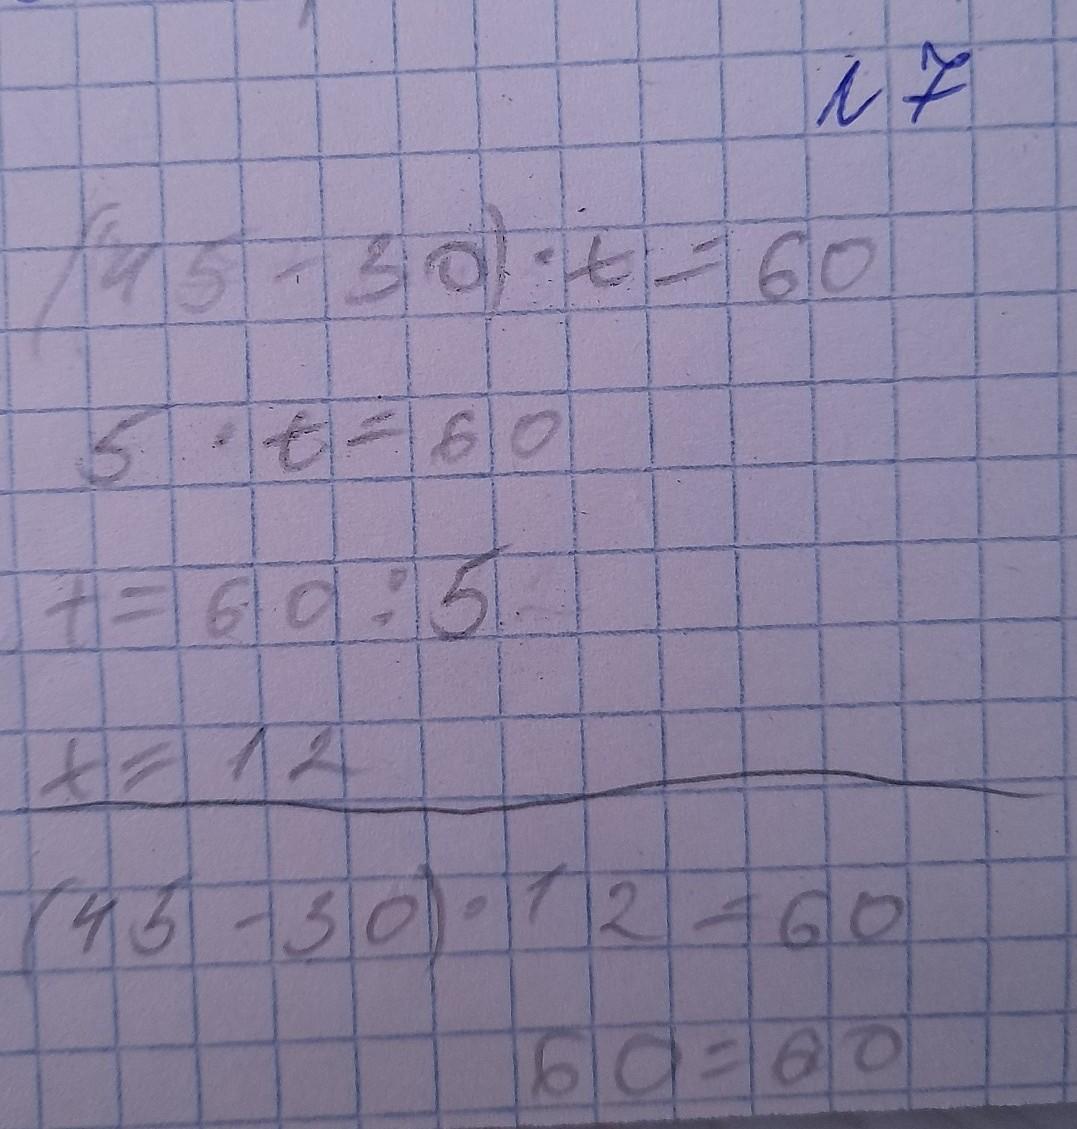 №7
(45 - 30) · t = 60
5 · t = 60
t = 60 : 5
t = 12
(45 - 30) · 12 = 60
60 = 60